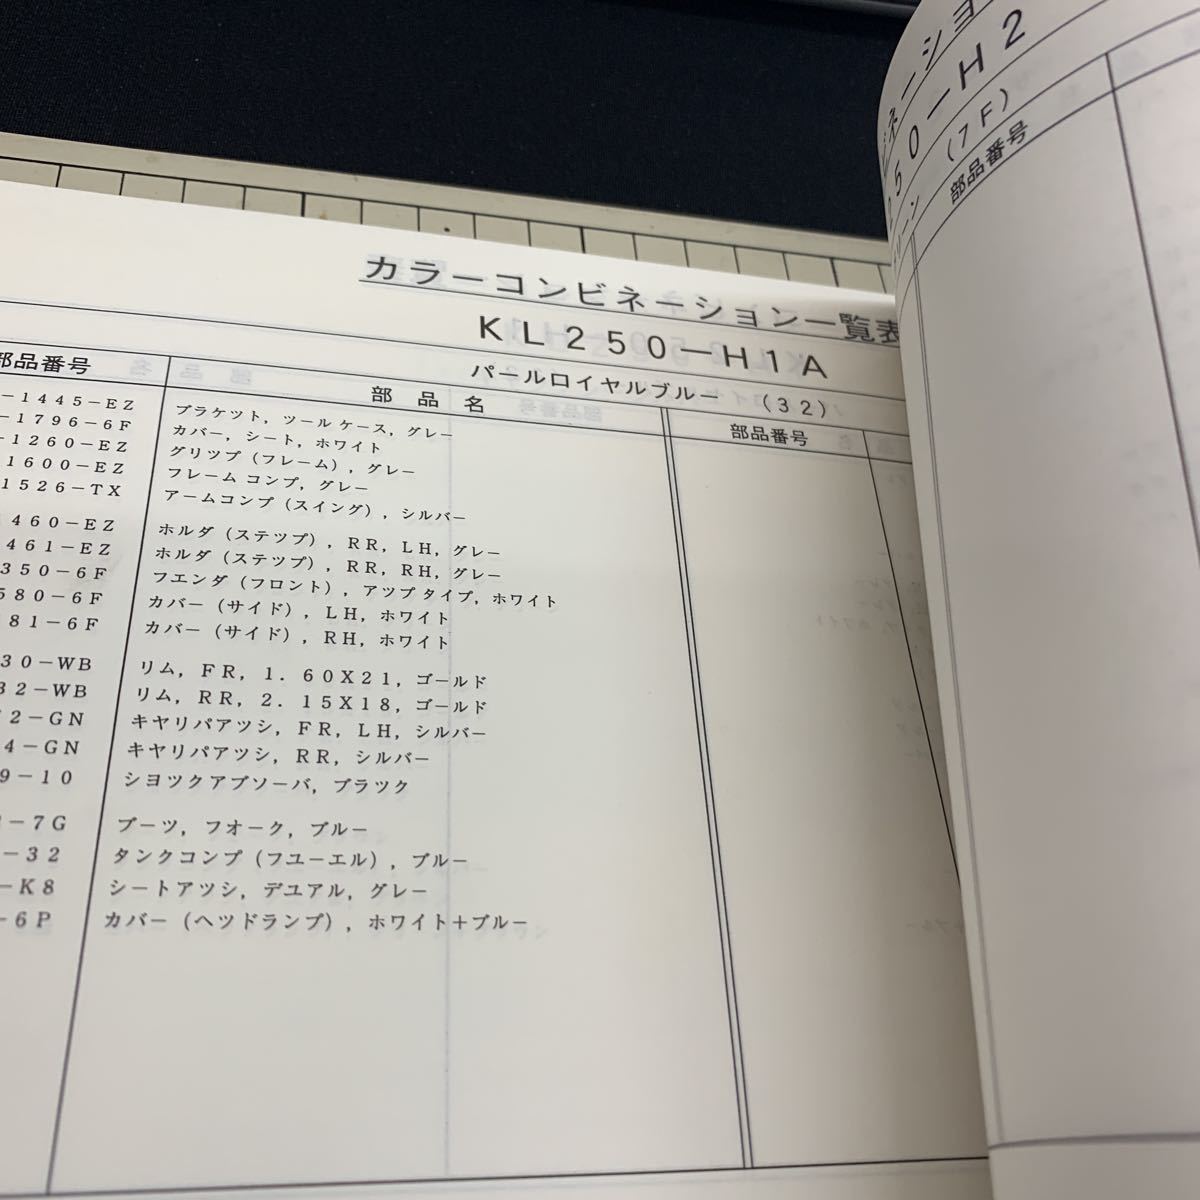 カラーコンビネーション一覧表
KL250-H1A
パールロイヤルブルー (32)
部品番号 部品名 部品番号
-1445-EZ ブラケット, ツール ケース, グレー
-1796-6F カバー, シート, ホワイト
-1260-EZ グリツプ (フレーム), グレー
1600-EZ フレーム コンプ, グレー
1526-TX アームコンプ (スイング), シルバー
460-EZ ホルダ (ステツプ), RR, LH, グレー
461-EZ ホルダ (ステツプ), RR, RH, グレー
350-6F フエンダ (フロント), アツプ タイプ, ホワイト
580-6F カバー (サイド), LH, ホワイト
81-6F カバー (サイド), RH, ホワイト
30-WB リム, FR, 1. 60X21, ゴールド
32-WB リム, RR, 2. 15X18, ゴールド
2-GN キヤリパアツシ, FR, LH, シルバー
4-GN キヤリパアツシ, RR, シルバー
9-10 シヨツクアブソーバ, ブラツク
-7G ブーツ, フオーク, ブルー
-32 タンクコンプ (フユーエル), ブルー
-K8 シートアツシ, デユアル, グレー
-6P カバー (ヘツドランプ), ホワイト+ブルー
ネーショ
50-H2
(7F)
リーン
部品番号